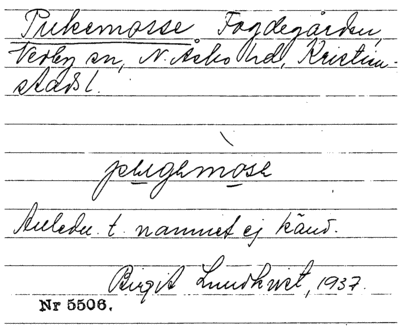 Pukemosse Fogdegården,
Verby sn, N. Åsbo hd, Kristian-
stads l.
pugemosa
Anledn. t. namnet ej känd.
Birgit Lundkvist, 1937.
Nr 5506.